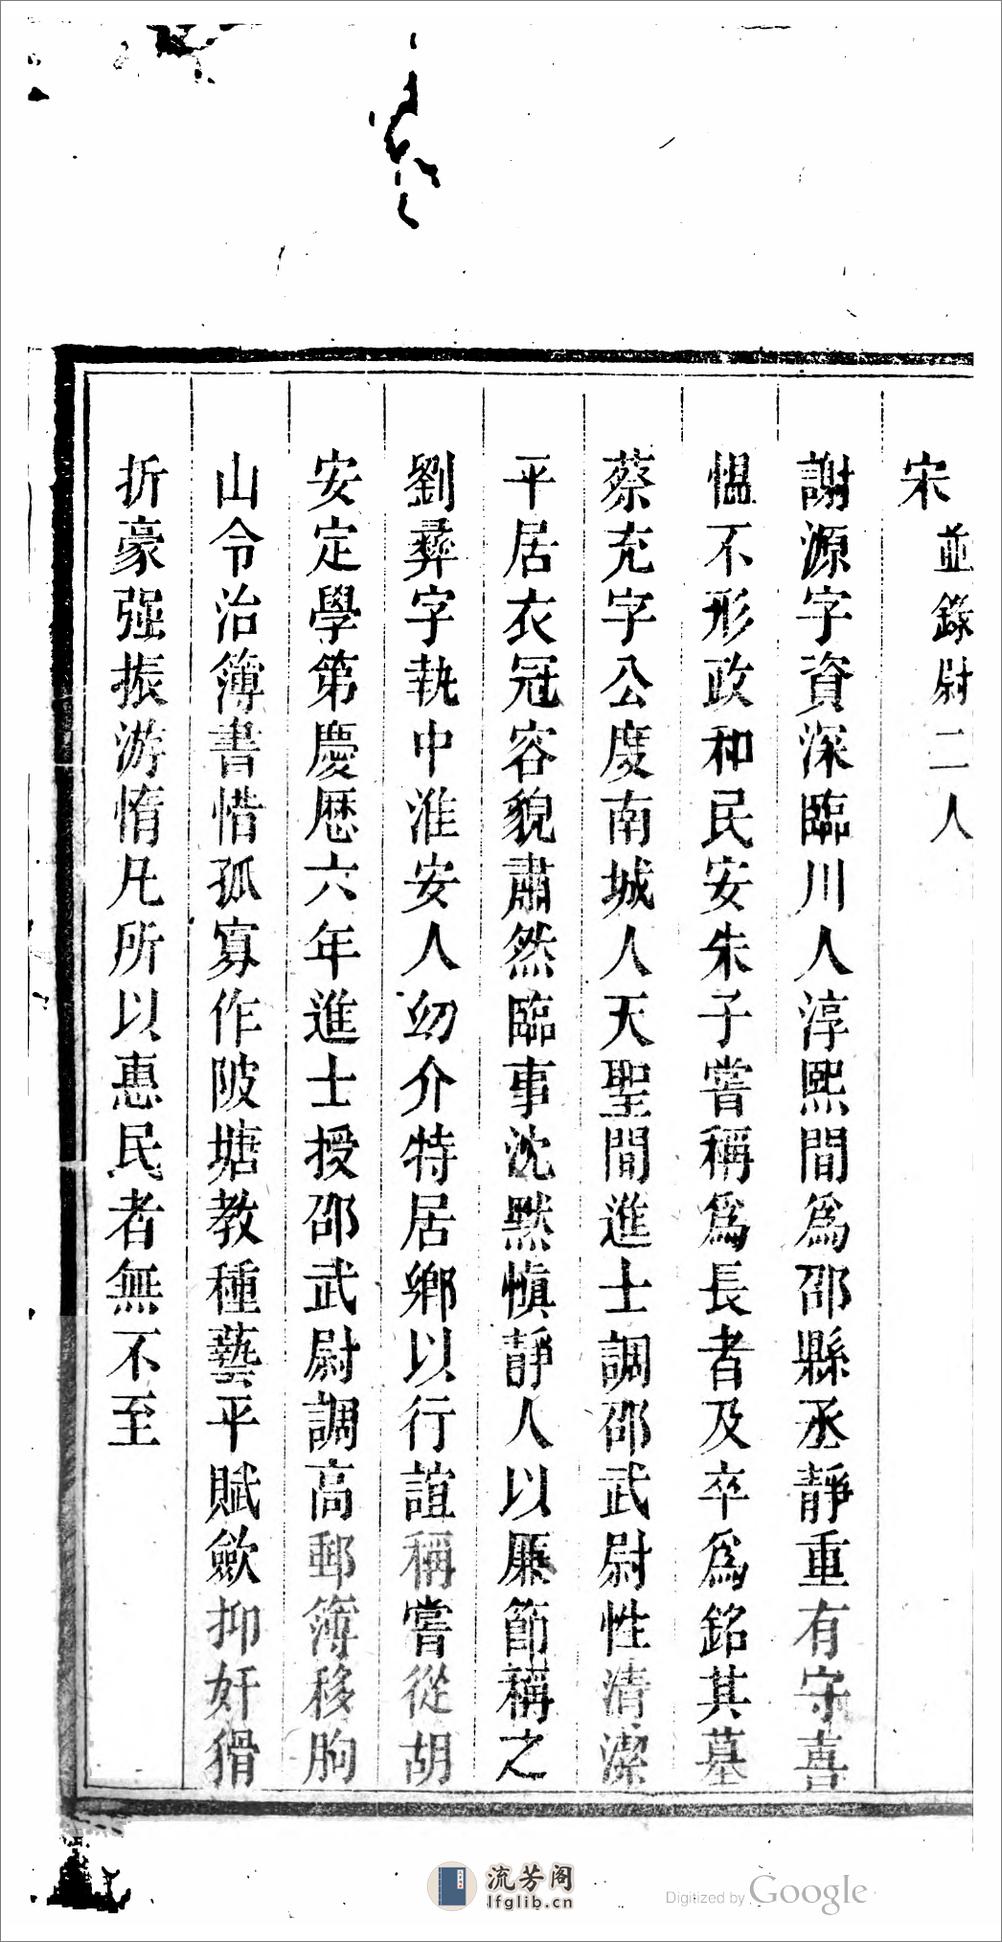 宋並錄尉二人
謝源字資深臨川人淳熙間爲邵縣丞靜重有守喜
慍不形政和民安朱子嘗稱爲長者及卒爲銘其墓
蔡充字公度南城人天聖間進士調邵武尉性清潔
平居衣冠容貌肅然臨事沈默愼靜人以廉節稱之
劉彝字執中淮安人幼介特居鄉以行誼稱嘗從胡
安定學第慶厯六年進士授邵武尉調高郵簿移朐
山令治簿書惜孤寡作陂塘教種藝平賦歛抑奸猾
折豪强振游惰凡所以惠民者無不至
流芳阁
lfglib.cn
Digitized by Google